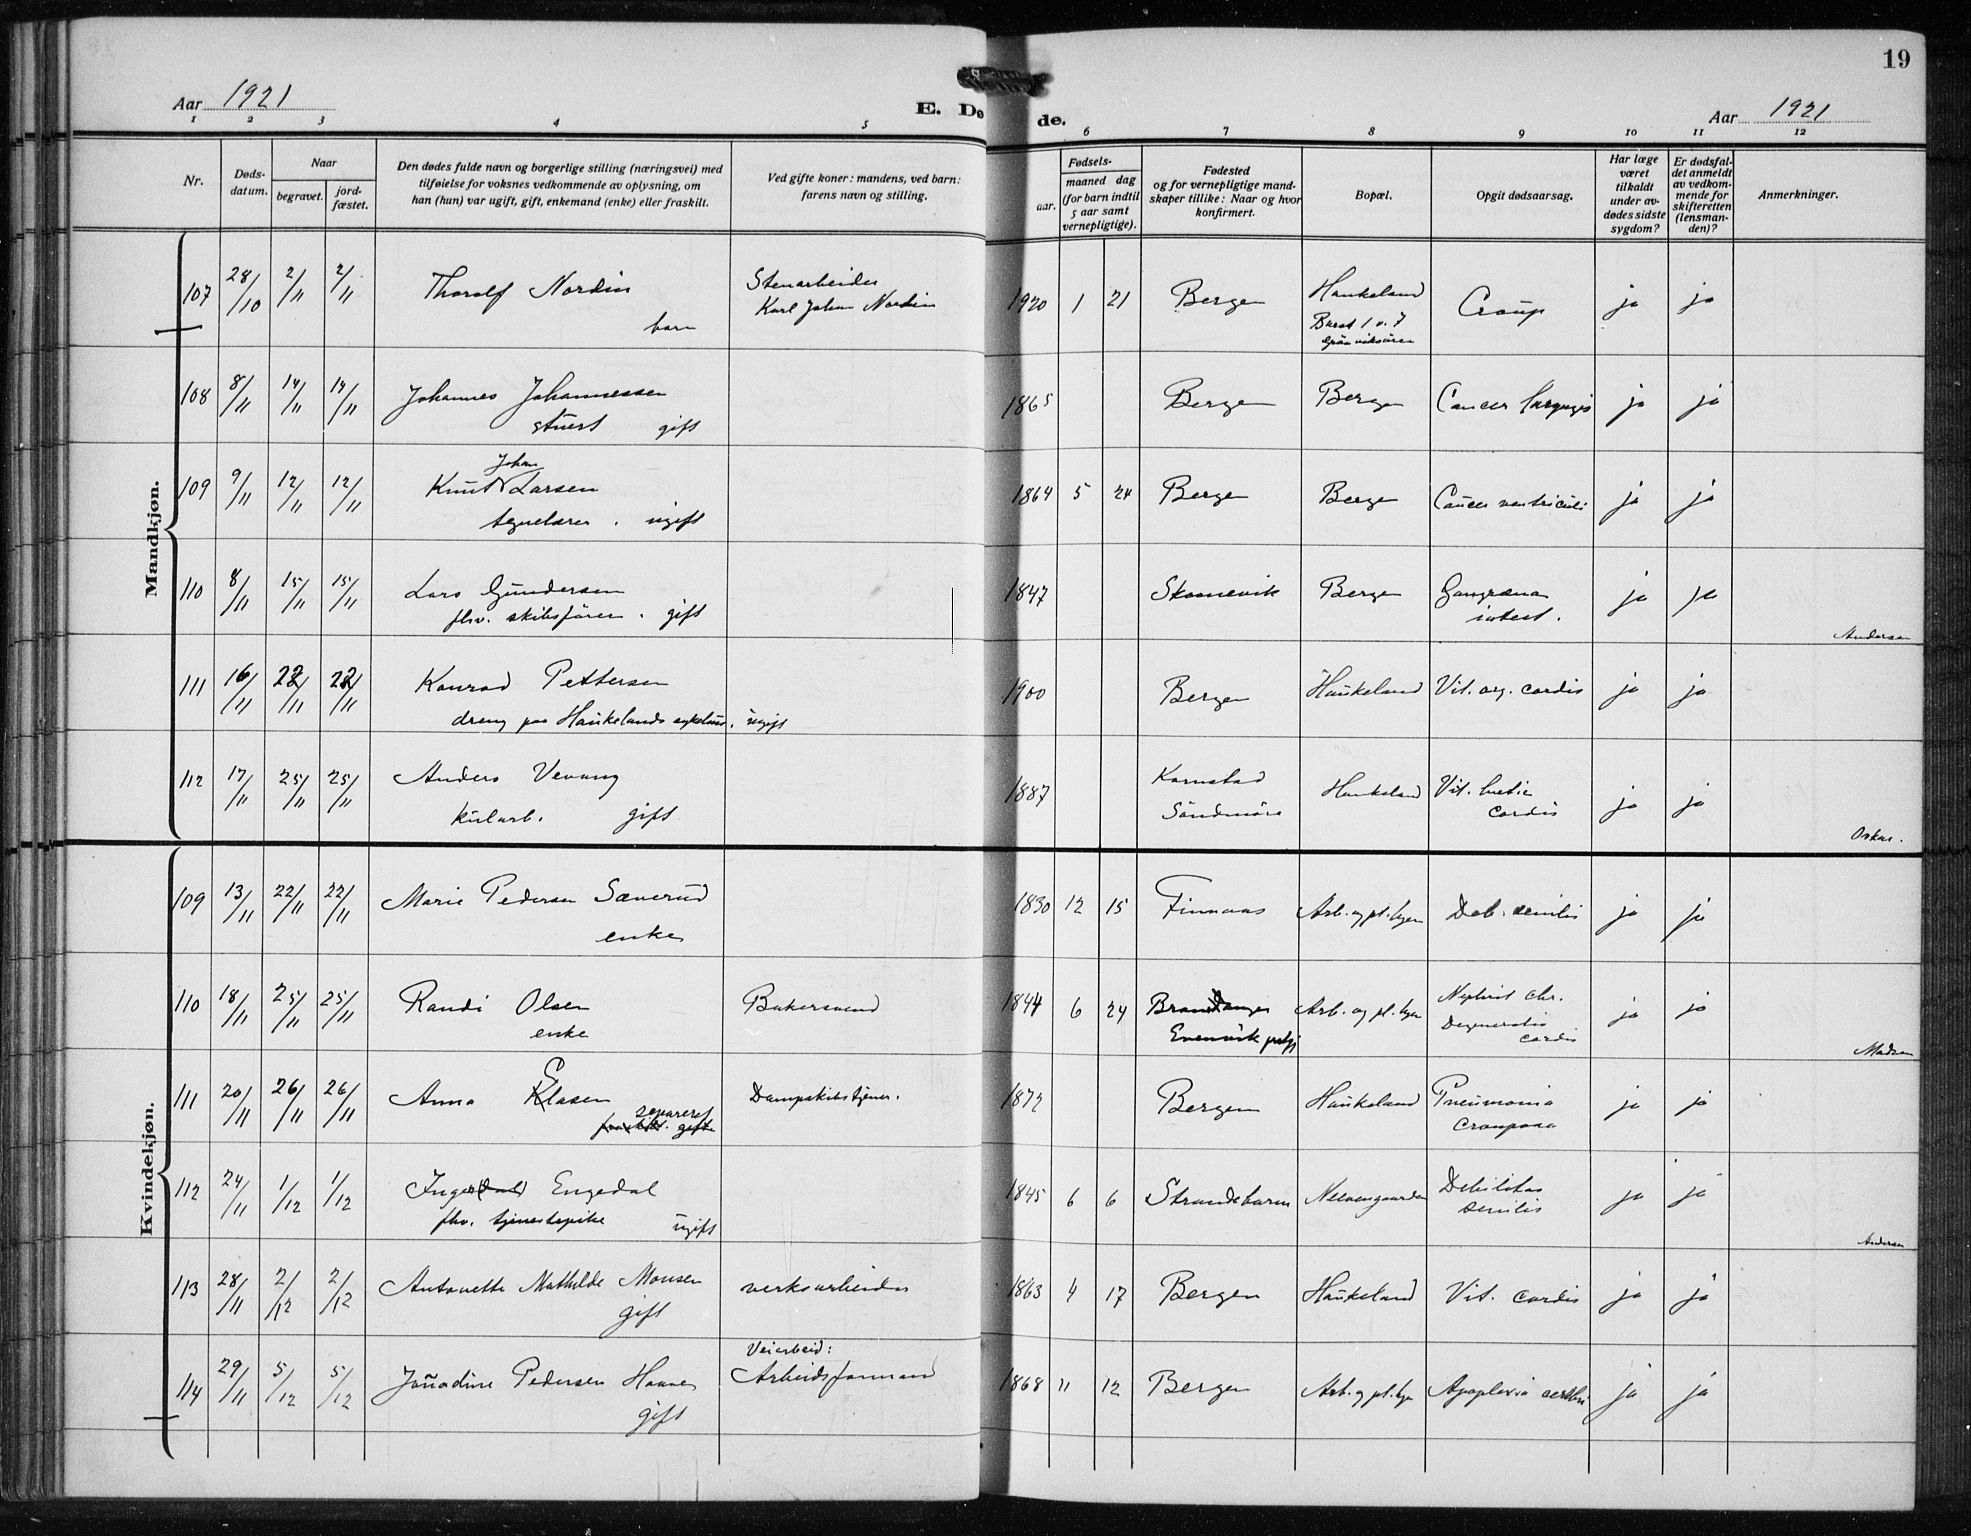 19
Aar 1921
E. Dø de.
Aar 1921
1 2 3 4 5 6 7 8 9 10 11 12
Nr.
Døds-
datum.
Naar
begravet.
jord-
fæstet.
Den dødes fulde navn og borgerlige stilling (næringsvei) med
tilføielse for voksnes vedkommende av oplysning, om
han (hun) var ugift, gift, enkemand (enke) eller fraskilt.
Ved gifte koner: mandens, ved barn:
farens navn og stilling.
Fødsels-
aar.
maaned dag
(for barn indtil
5 aar samt
vernepligtige).
Fødested
og for vernepligtige mand-
skaper tillike: Naar og hvor
konfirmert.
Bopæl.
Opgit dødsaarsag.
Har læge
været
tilkaldt
under av-
dødes sidste
sygdom?
Er dødsfal-
det anmeldt
av vedkom-
mende for
skifteretten
(lensman-
den)?
Anmerkninger.
Mandkjøn.
107 28/10 2/11 2/11 Thorolf Nordin Stenarbeider 1920 1 21 Bergen Haukeland Croup ja ja
barn Karl Johan Nordin
108 8/11 14/11 14/11 Johannes Johannessen 1865 Bergen Bergen Cancer laryngis ja ja
stuert gift
Johan
109 9/11 12/11 12/11 Knut Larsen 1864 5 24 Bergen Bergen Cancer ventriculi ja ja
tegnelærer. ugift
110 8/11 15/11 15/11 Lars Gundersen 1847 Skonevik Bergen Gangræna ja ja
fhv. skibsfører. gift intest.
Andersen
111 16/11 22/11 22/11 Konrad Pettersen 1900 Bergen Haukeland Vit. org. cordis ja ja
dreng paa Haukelands sykehus. ugift
112 17/11 25/11 25/11 Anders Vevang 1887 Kornstad Haukeland Vit. luetic ja ja
kularb. gift Söndmöre cordis
Kvindekjøn.
109 13/11 22/11 22/11 Marie Pedersen Sæverud 1830 12 15 Finnaas Arb. og pl. hjem Deb. senilis ja ja
enke
110 18/11 25/11 25/11 Randi Olsen Bakersvend 1844 6 24 Brandanger Arb. og pl. hjem Nephrit chr. ja ja
enke Evenvik prstgj Degeneratio
cordis
Madsen
111 20/11 26/11 26/11 Anna Clasen Dampskibstjener. 1872 Bergen Haukeland Pneumonia ja ja
separeret crouposa
fraskilt. gift
112 24/11 1/12 1/12 Inger Engedal 1845 6 6 Strandebarm Debilitas ja ja
fhv. tjenestepike ugift senilis
Andersen
113 28/11 2/12 2/12 Antonette Mathilde Monsen verksarbeider 1863 4 17 Bergen Haukeland Vit. cordis ja ja
gift
Veiarbeid:
114 29/11 5/12 5/12 Pedersen Arbeidsformand 1868 11 12 Bergen Arb. og pl. hjem Apoplexia cerebri ja ja
gift